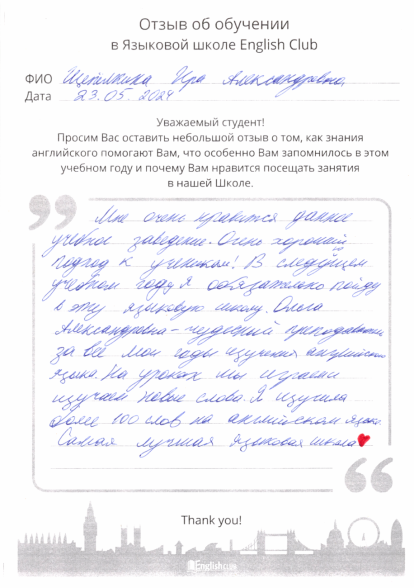 Отзыв об обучении
в Языковой школе English Club
ФИО Щепилкина Ира Александровна
Дата 23.05.2024
Уважаемый студент!
Просим Вас оставить небольшой отзыв о том, как знания
английского помогают Вам, что особенно Вам запомнилось в этом
учебном году и почему Вам нравится посещать занятия
в нашей Школе.
Мне очень нравится данное
учебное заведение. Очень хороший
подход к ученикам! В следущем
учебном году я обязательно пойду
в эту языковую школу. Ольга
Александровна - чудесный преподаватель
за все мои годы изучения английского
языка. На уроках мы играем
изучаем новые слова. Я изучила
более 100 слов на английском языке.
Самая лучшая языковая школа
Thank you!
Englishclub